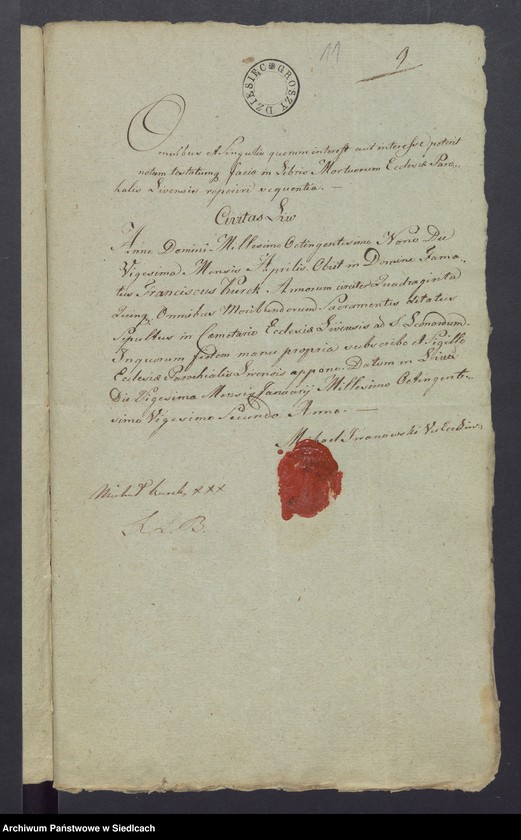 11
9
DZIESIĘĆ GROSZY
Omnibus et Singulis quorum interest aut interesse poterit
notum testatumq facio in Libris Mortuorum Ecclesiæ Paro-
chialis Livensis reperiri sequentia. —
Civitas Liw
Anno Domini Millesimo Octingentesimo Nono Die
Vigesima Mensis Aprilis Obiit in Domino Fama-
tus Franciscus Kurek Annorum circiter Quadraginta
Quinq Omnibus Moribundorum Sacramentis
Sepultus in Cæmetario Ecclesiæ Livensis ad S. Leonardum.
In quorum fidem manu propria subscribo et Sigillo
Ecclesiæ Parochialis Livensis appono. Datum in
Die Vigesima Mensis Januarij Millesimo Octingente-
simo Vigesimo Secundo Anno. —
Michael Iwanowski
Michał Kurek, xxx
Archiwum Państwowe w Siedlcach